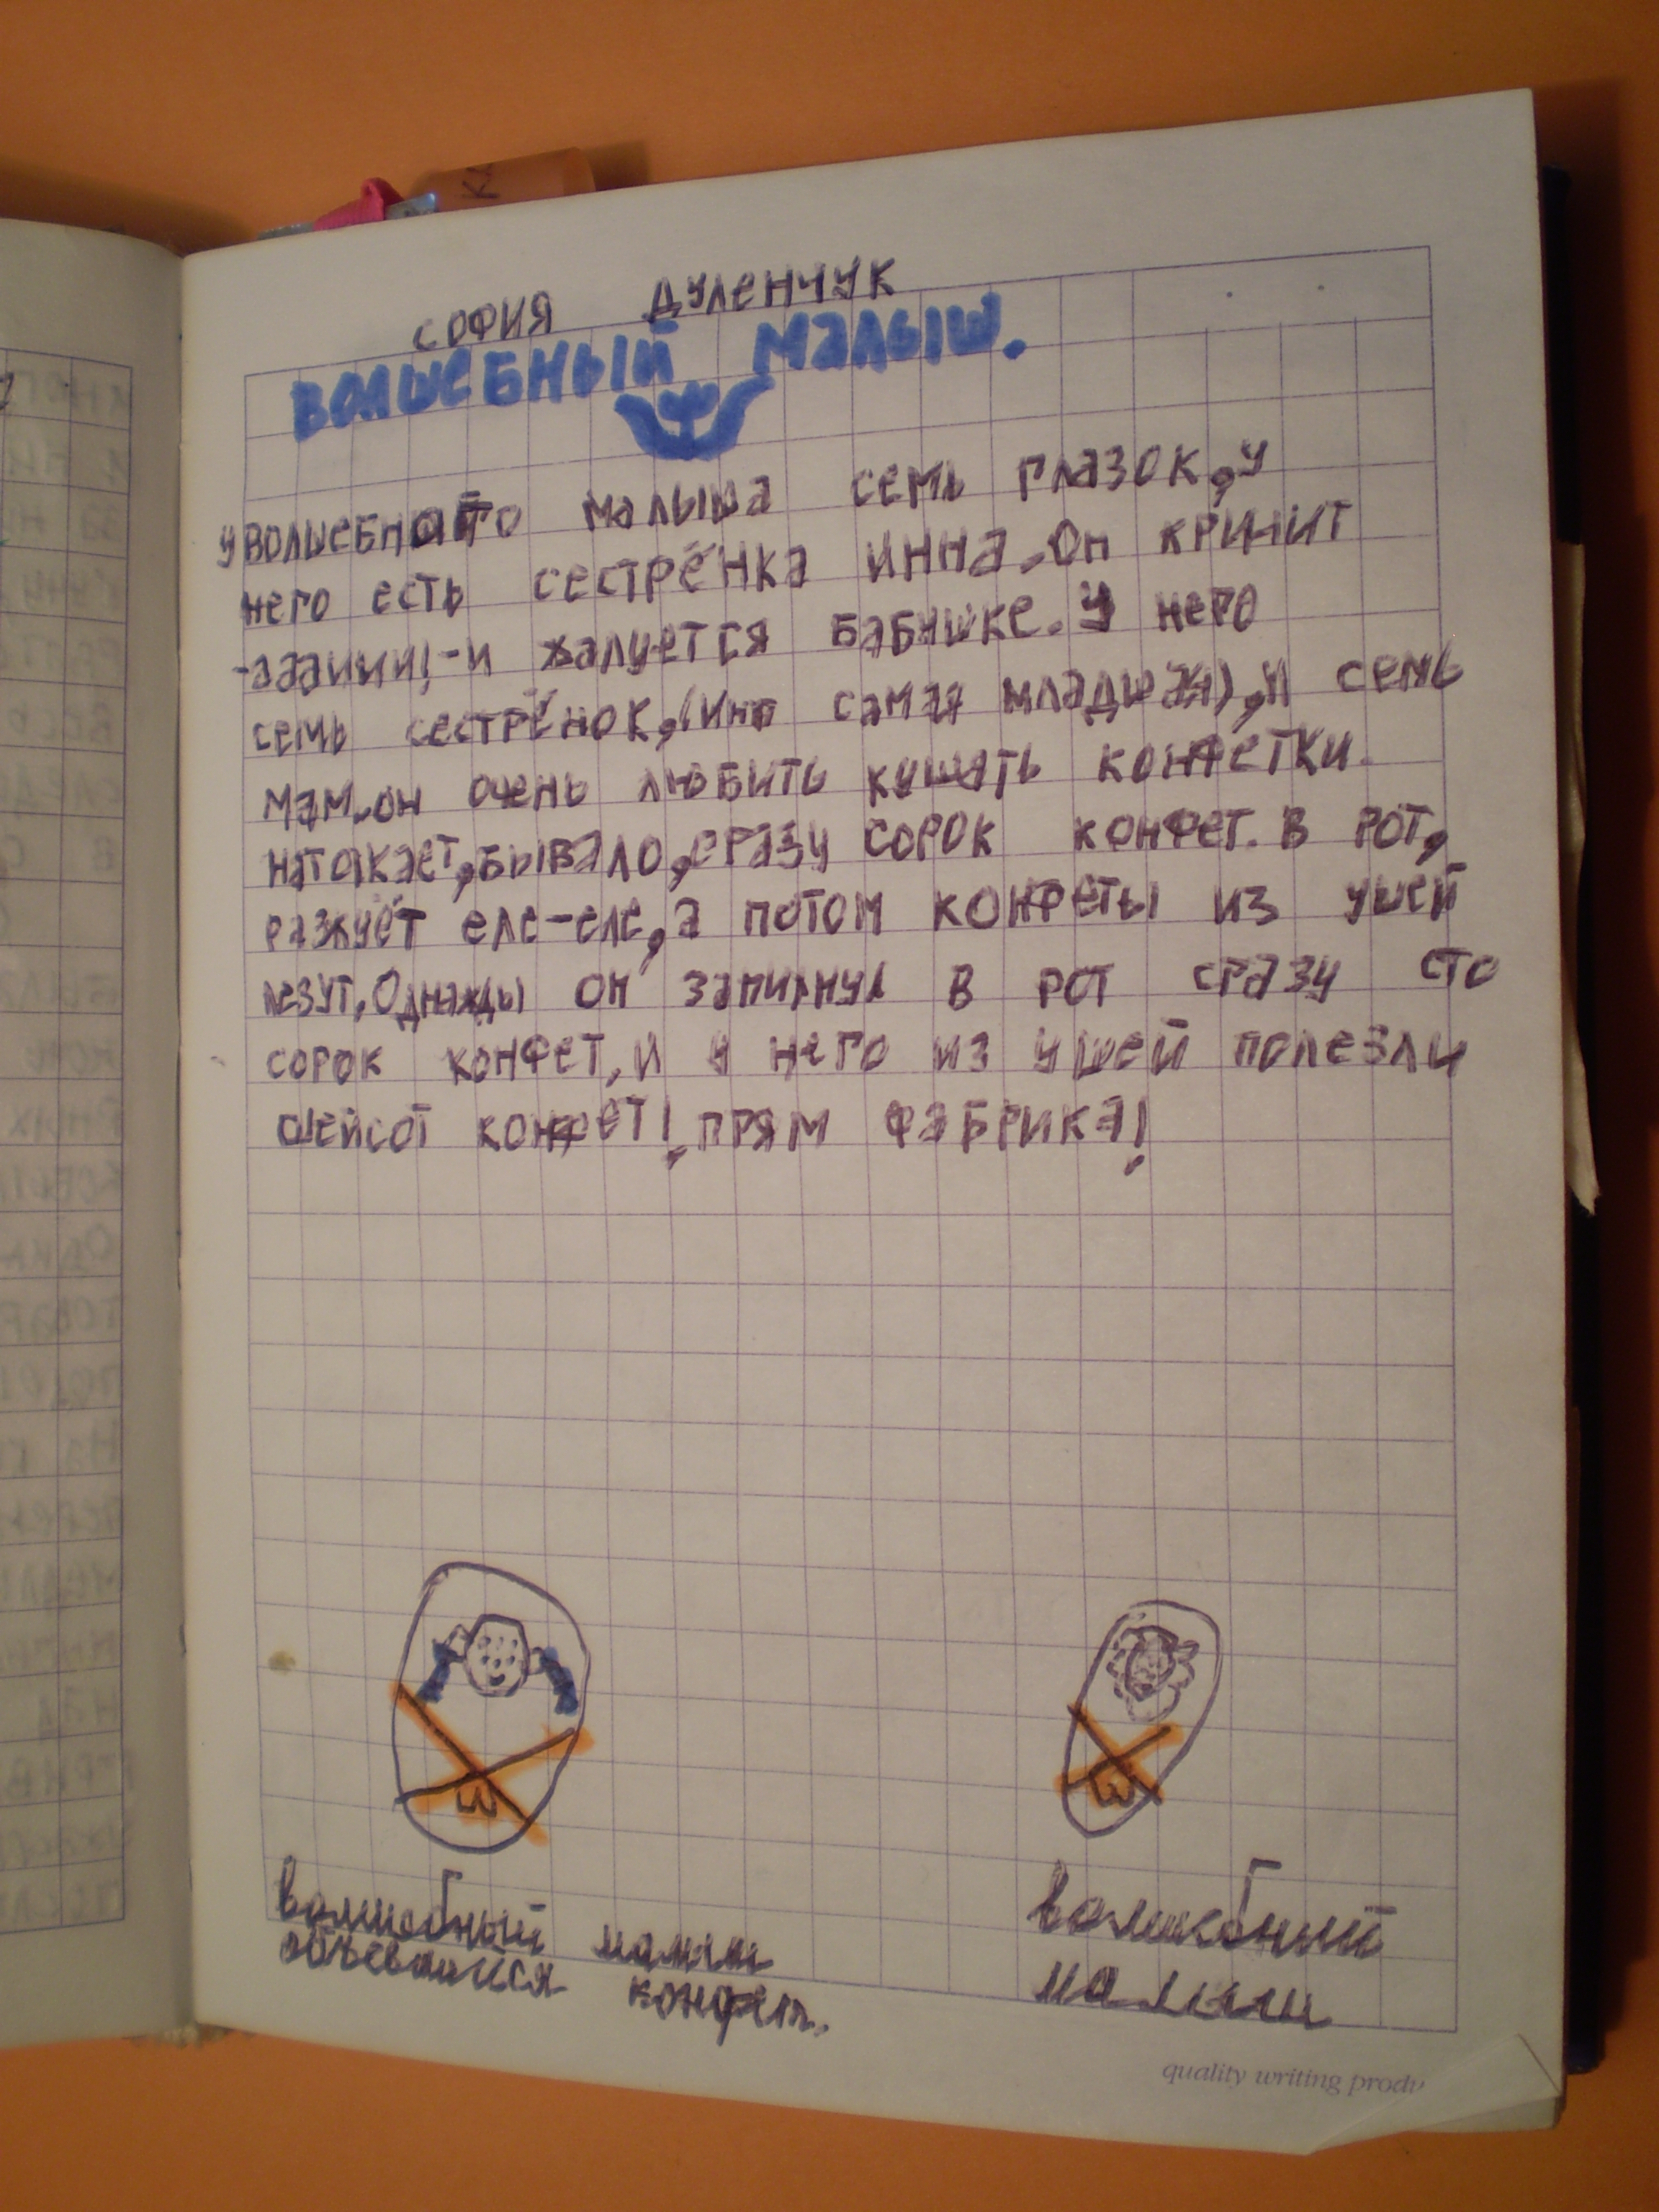 СОФИЯ ДУЛЕНЧУК
ВОЛШЕБНЫЙ МАЛЫШ.
У ВОЛШЕБНОГО МАЛЫША СЕМЬ ГЛАЗОК, У
НЕГО ЕСТЬ СЕСТРЁНКА ИННА. ОН КРИЧИТ
-АДАИИИ!-И ЖАЛУЕТСЯ БАБУШКЕ. У НЕГО
СЕМЬ СЕСТРЁНОК, (ИНА САМАЯ МЛАДШАЯ), И СЕМЬ
МАМ. ОН ОЧЕНЬ ЛЮБИТЬ КУШАТЬ КОНФЕТКИ.
НАТОЛКАЕТ, БЫВАЛО, СРАЗУ СОРОК КОНФЕТ. В РОТ,
РАЗЖУЁТ ЕЛЕ-ЕЛЕ, А ПОТОМ КОНФЕТЫ ИЗ УШЕЙ
ЛЕЗУТ. ОДНАЖДЫ ОН ЗАПИХНУЛ В РОТ СРАЗУ СТО
СОРОК КОНФЕТ, И У НЕГО ИЗ УШЕЙ ПОЛЕЗЛИ
ШЕЙСОТ КОНФЕТ! ПРЯМ ФАБРИКА!
волшебный малыш
объевшийся конфет.
волшебный
малыш
quality writing produ